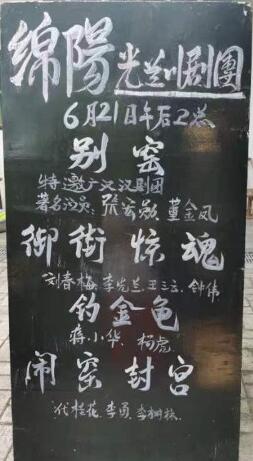 绵陽光兰川剧團
6月21日午后2点
别窑
特邀广汉汉剧团
著名汉员：張宏勋、董金凤
御街惊魂
刘春梅、李光兰、王三云、钟伟
钓金龟
蒋小华、杨虎
闹窑封宫
代桂花、李勇、李